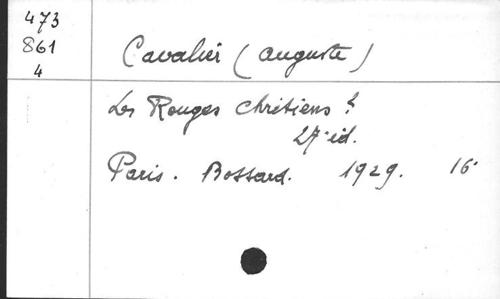 473
861
4
Cavalier (Auguste)
Les Rouges Chrétiens ?
27e éd.
Paris. Bossard. 1929. 16°